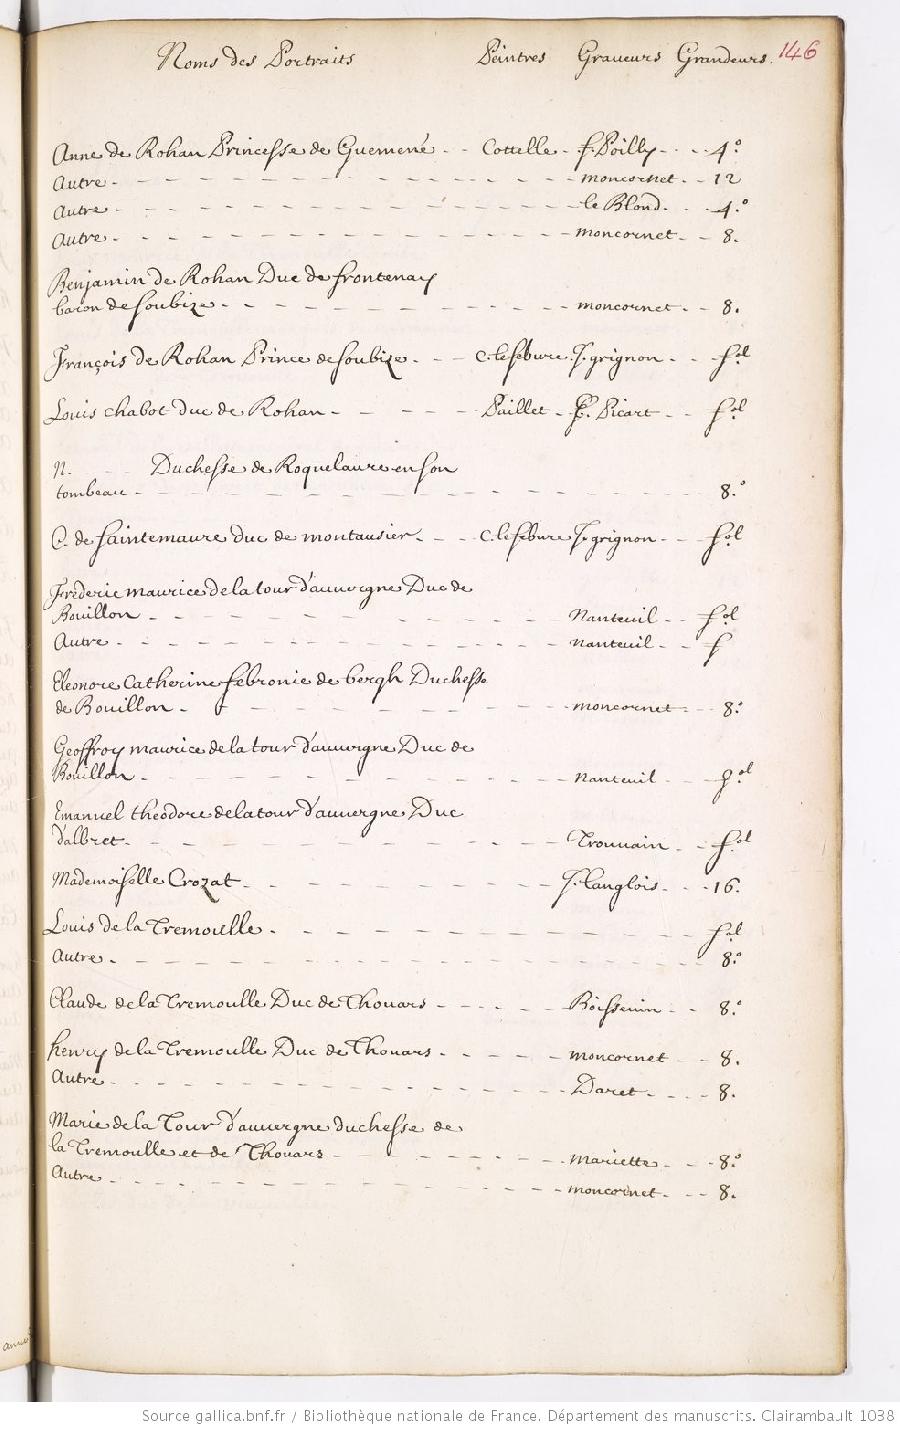 Noms des Portraits Peintres Graveurs Grandeurs. 146
Anne de Rohan Princesse de Guemené - - Cottelle - f. Poilly - - - 4.°
Autre - - - moncornet - - 12
Autre - - - le Blond - - - 4.°
Autre - - - moncornet - - 8.
Benjamin de Rohan Duc de frontenay
baron de soubize - - - moncornet - - 8.
François de Rohan Prince de soubize - - - C. lefebure J. grignon - - fol
Louis chabot duc de Rohan - - - Paillet - E. Picart - - fol
N. Duchesse de Roquelaure en son
tombeau - - - 8.°
C. de saintemaure duc de montausier - - - C. lefebure J. grignon - - fol
Frederic maurice de la tour d'auvergne Duc de
Bouillon - - - Nanteuil - - fol
Autre - - - nanteuil - - f
Eleonore Catherine febronie de bergh Duchesse
de Bouillon - - - moncornet - - 8.°
Geoffroy maurice de la tour d'auuergne Duc de
Bouillon - - - nanteuil - - fol
Emanuel theodore de la tour d'auuergne Duc
d'albret - - - Trouuain - - fol
Mademoiselle Crozat - - - J. langlois - - - 16.
Louis de la Tremoulle - - - fol
Autre - - - 8.°
Claude de la Tremoulle Duc de Thouars - - - Boisseuin - - 8.°
henry de la Tremoulle Duc de Thouars - - - moncornet - - 8.
Autre - - - Daret - - - 8.
Marie de la Tour d'auuergne duchesse de
la Tremoulle et de Thouars - - - mariette - - - 8.°
Autre - - - moncornet - - - 8.
Source gallica.bnf.fr / Bibliothèque nationale de France. Département des manuscrits. Clairambault 1038